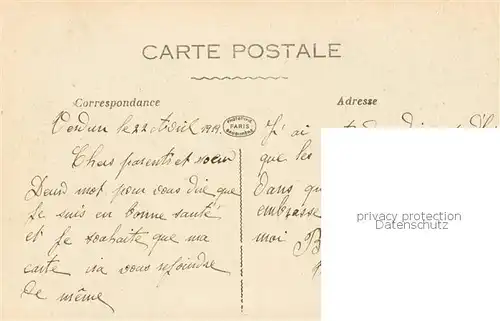 CARTE POSTALE
Correspondance
Adresse
Verdun le 22 Avril 1919.
Chers parents et soeur
Deux mot pour vous dire que
je suis en bonne santé
et je souhaite que ma
carte ira vous rejoindre
de même
PARIS
J'ai
que les
Dans
embrasse
moi
privacy protection
Datenschutz